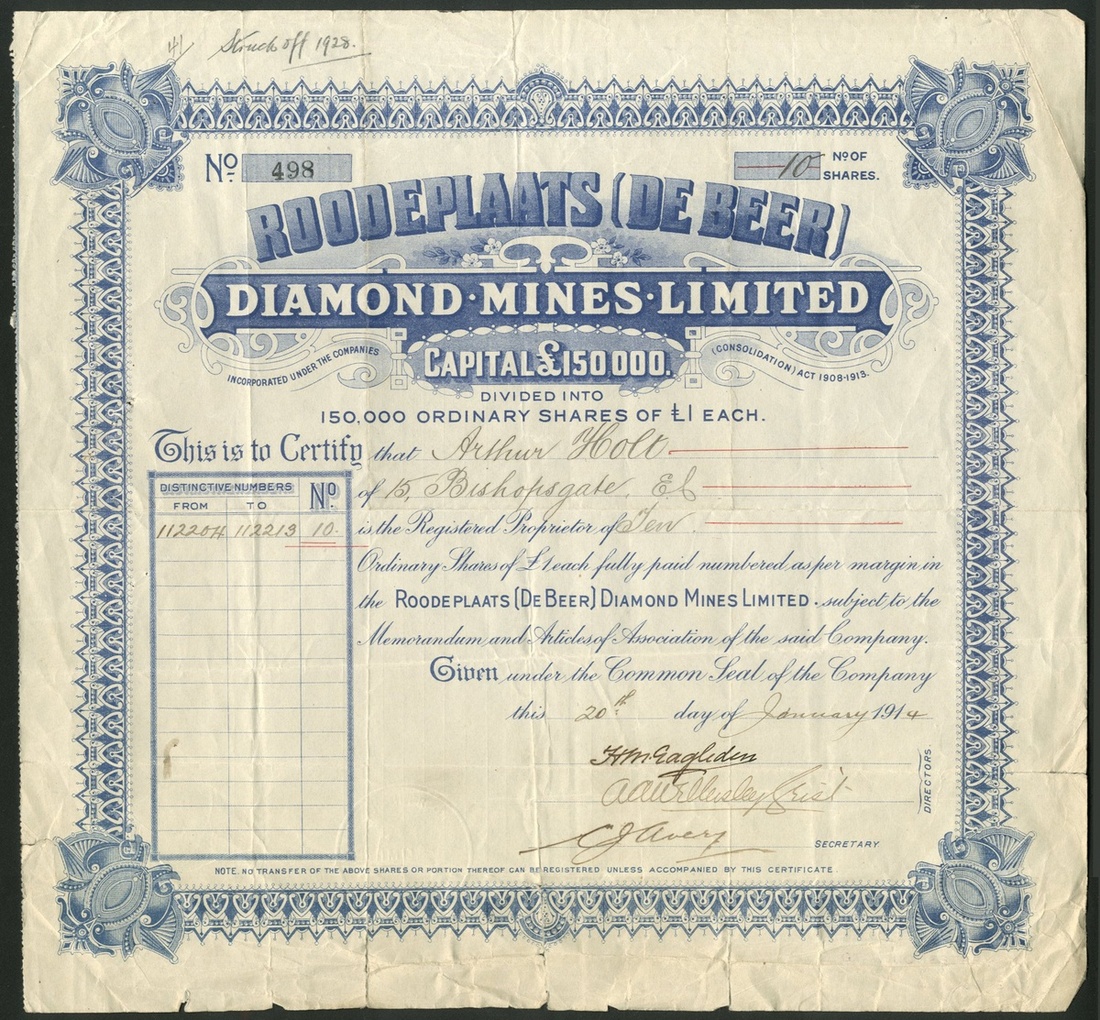 41 Struck off 1928.
No. 498
10 No. OF SHARES.
ROODEPLAATS (DE BEER)
DIAMOND·MINES·LIMITED
INCORPORATED UNDER THE COMPANIES (CONSOLIDATION) ACT 1908-1913.
CAPITAL £150000.
DIVIDED INTO
150,000 ORDINARY SHARES OF £1 EACH.
This is to Certify that Arthur Holt
of 15, Bishopsgate, EC
is the Registered Proprietor of Ten
Ordinary Shares of £1 each fully paid numbered as per margin in
the ROODEPLAATS (DE BEER) DIAMOND MINES LIMITED. subject to the
Memorandum and Articles of Association of the said Company.
Given under the Common Seal of the Company
this 20th day of January 1914
DISTINCTIVE NUMBERS No.
FROM TO
112204 112213 10.
DIRECTORS.
C J Avery SECRETARY
NOTE. NO TRANSFER OF THE ABOVE SHARES OR PORTION THEREOF CAN BE REGISTERED UNLESS ACCOMPANIED BY THIS CERTIFICATE.